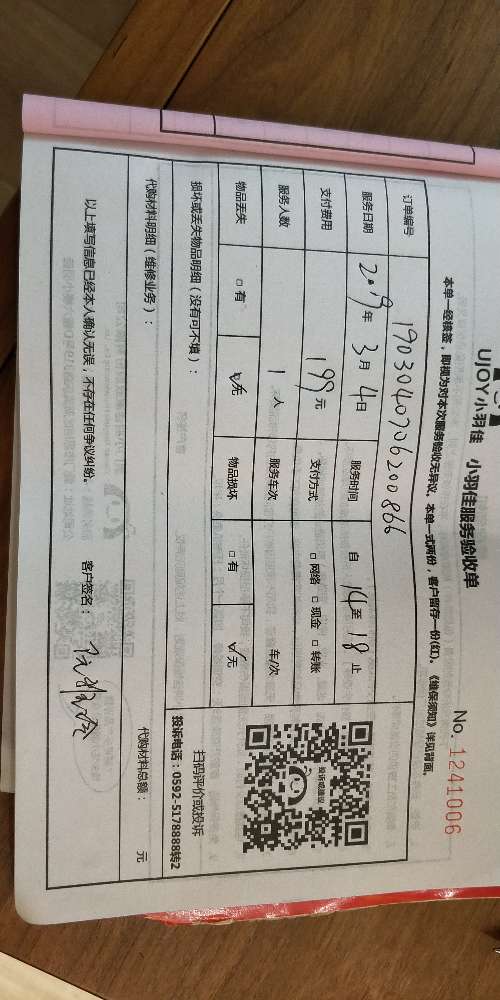 UJOY小羽佳 小羽佳服务验收单
No. 1241006
本单一经核签，即视为对本次服务验收无异议。本单一式两份，客户留存一份(红)。《维保须知》详见背面。
订单编号 1903040706200866
服务日期 2019年 3月 4日 服务时间 自 14 至 18 止
支付费用 199元 支付方式 □ 网络 □ 现金 □ 转账
服务人数 1 人 服务车次 车/次
物品丢失 □ 有 ☑ 无 物品损坏 □ 有 ☑ 无
投诉或建议
扫码评价或投诉
投诉电话：0592-5178888转2
损坏或丢失物品明细（没有可不填）：
代购材料明细（维修业务）： 代购材料总额： 元
以上填写信息已经本人确认无误，不存在任何争议纠纷。 客户签名：